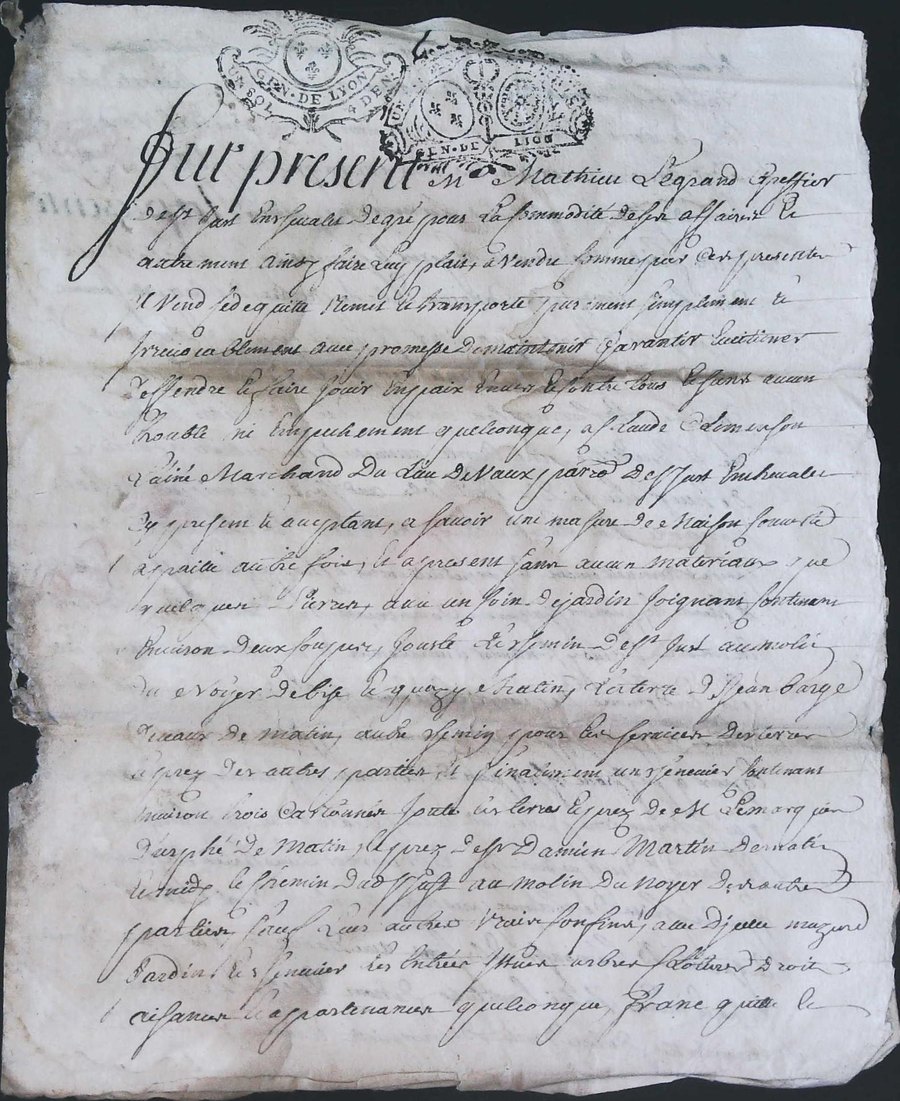 GEN. DE LYON
SOL 4 DEN
GEN. DE LION
Fut present Mr Mathieu Legrand
de St Just en chevalet de gré pour la commodité de ses affaires et
autrement ainsy faire luy plait, a vendu comme par ces presentes
il vend cede quitte remet et transporte purement simplement et
irrevocablement avec promesse de maintenir garantir
deffendre et faire jouir en paix envers et contre tous et sans aucun
trouble ni empechement quelconque, a Claude
l'ainé marchand du lieu de Vaux parr de St Just en chevalet
icy present et acceptant, a savoir une masure de maison couverte
a paille autrefois, et a present sans aucun materiaux que
quelques pierres, avec un de jardin joignant contenant
environ deux coupes, jouste le chemin de St Just au molin
du Noyer de bise et matin, la terre de Jean barge
de matin, autre chemin pour les services
et prez des autres parties et finalement un chenevier contenant
environ trois cartonnées jouste les terres et prez de M
Durphé de matin, le prez de Sr Damien Martin de
et midy le chemin dud St Just au molin du Noyer des autres
parties, sauf leurs autres vrais confins, avec
jardin et chenevier les entrées issues arbres clotures droits
aisances et appartenances quelconque, franc quitte et